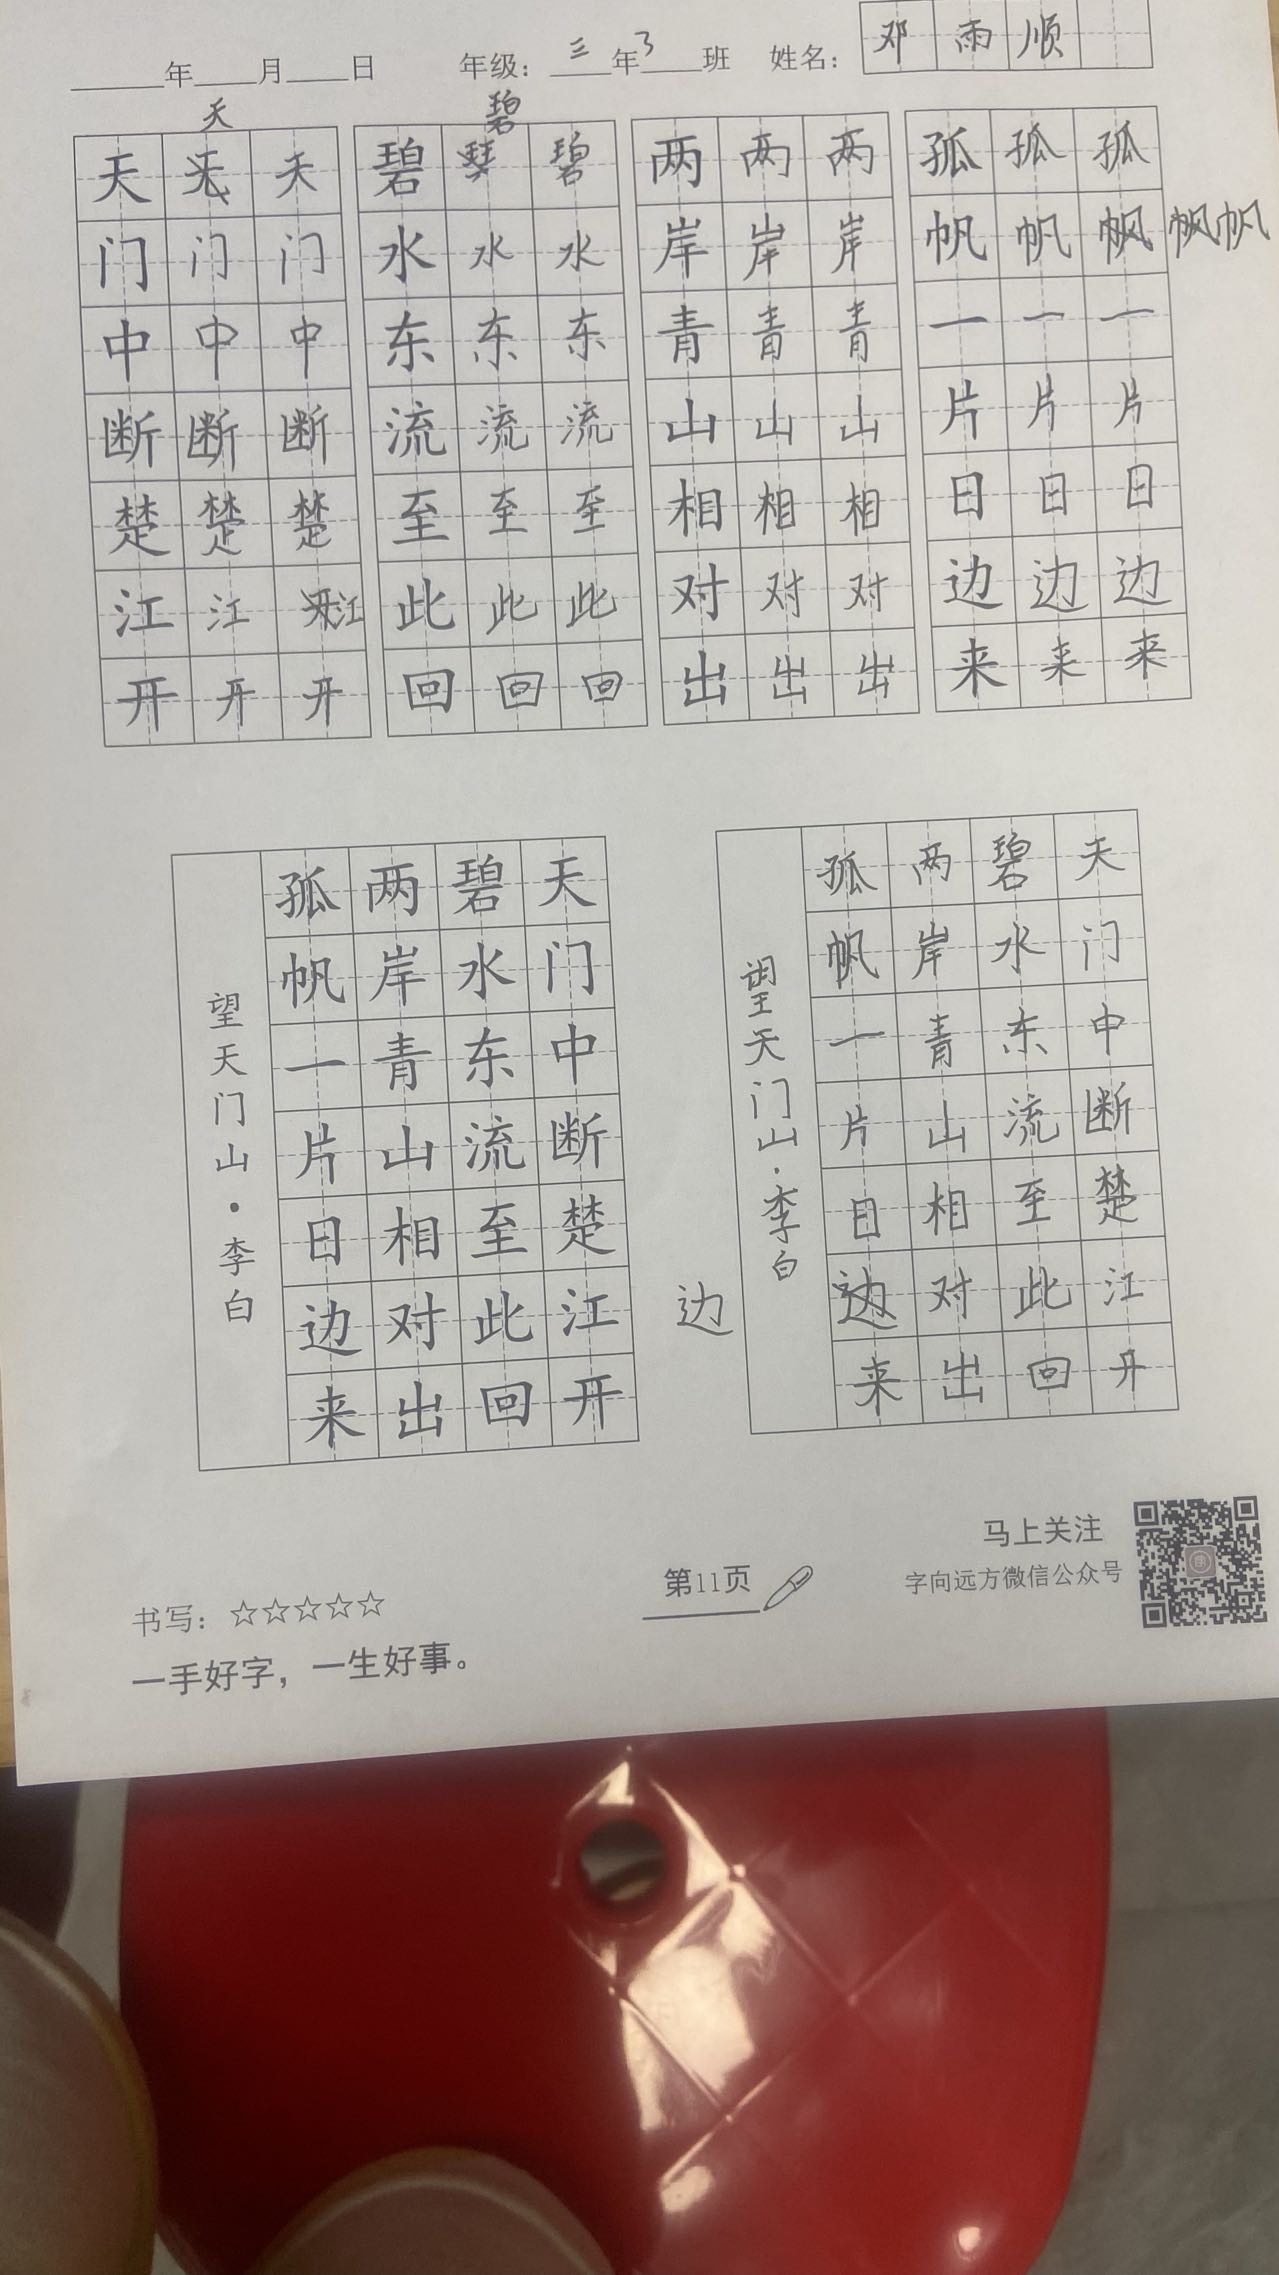 邓雨顺
年 月 日 年级：三年3班 姓名：
天 碧
天 天 碧 碧 两 两 两 孤 孤 孤
门 门 门 水 水 水 岸 岸 岸 帆 帆 帆 帆
中 中 中 东 东 东 青 青 青 一 一 一
断 断 断 流 流 流 山 山 山 片 片 片
楚 楚 楚 至 至 至 相 相 相 日 日 日
江 江 江 此 此 此 对 对 对 边 边 边
开 开 开 回 回 回 出 出 出 来 来 来
天门中断楚江开
碧水东流至此回
两岸青山相对出
孤帆一片日边来
望天门山·李白
天门中断楚江开
碧水东流至此回
两岸青山相对出
孤帆一片日边来
望天门山·李白
边
马上关注
字向远方微信公众号
第11页
书写：☆☆☆☆☆
一手好字，一生好事。